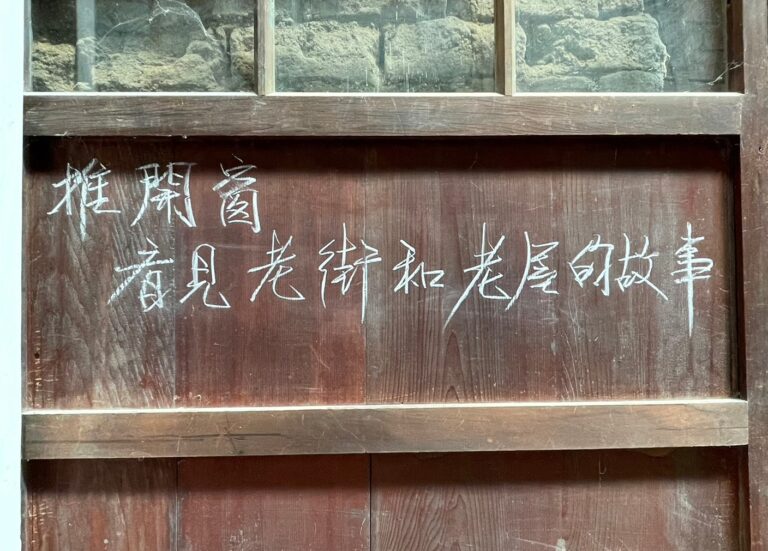 推開窗
看見老街和老屋的故事